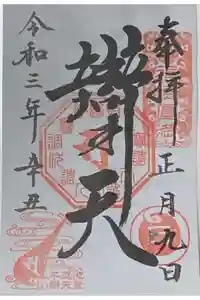 奉拝
正月九日
辨才天
令和三年 辛丑